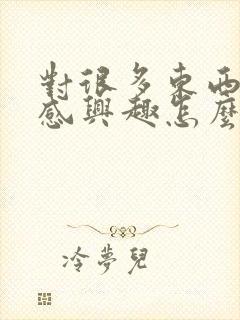 對很多東西
感興趣怎麼
冷夢兒